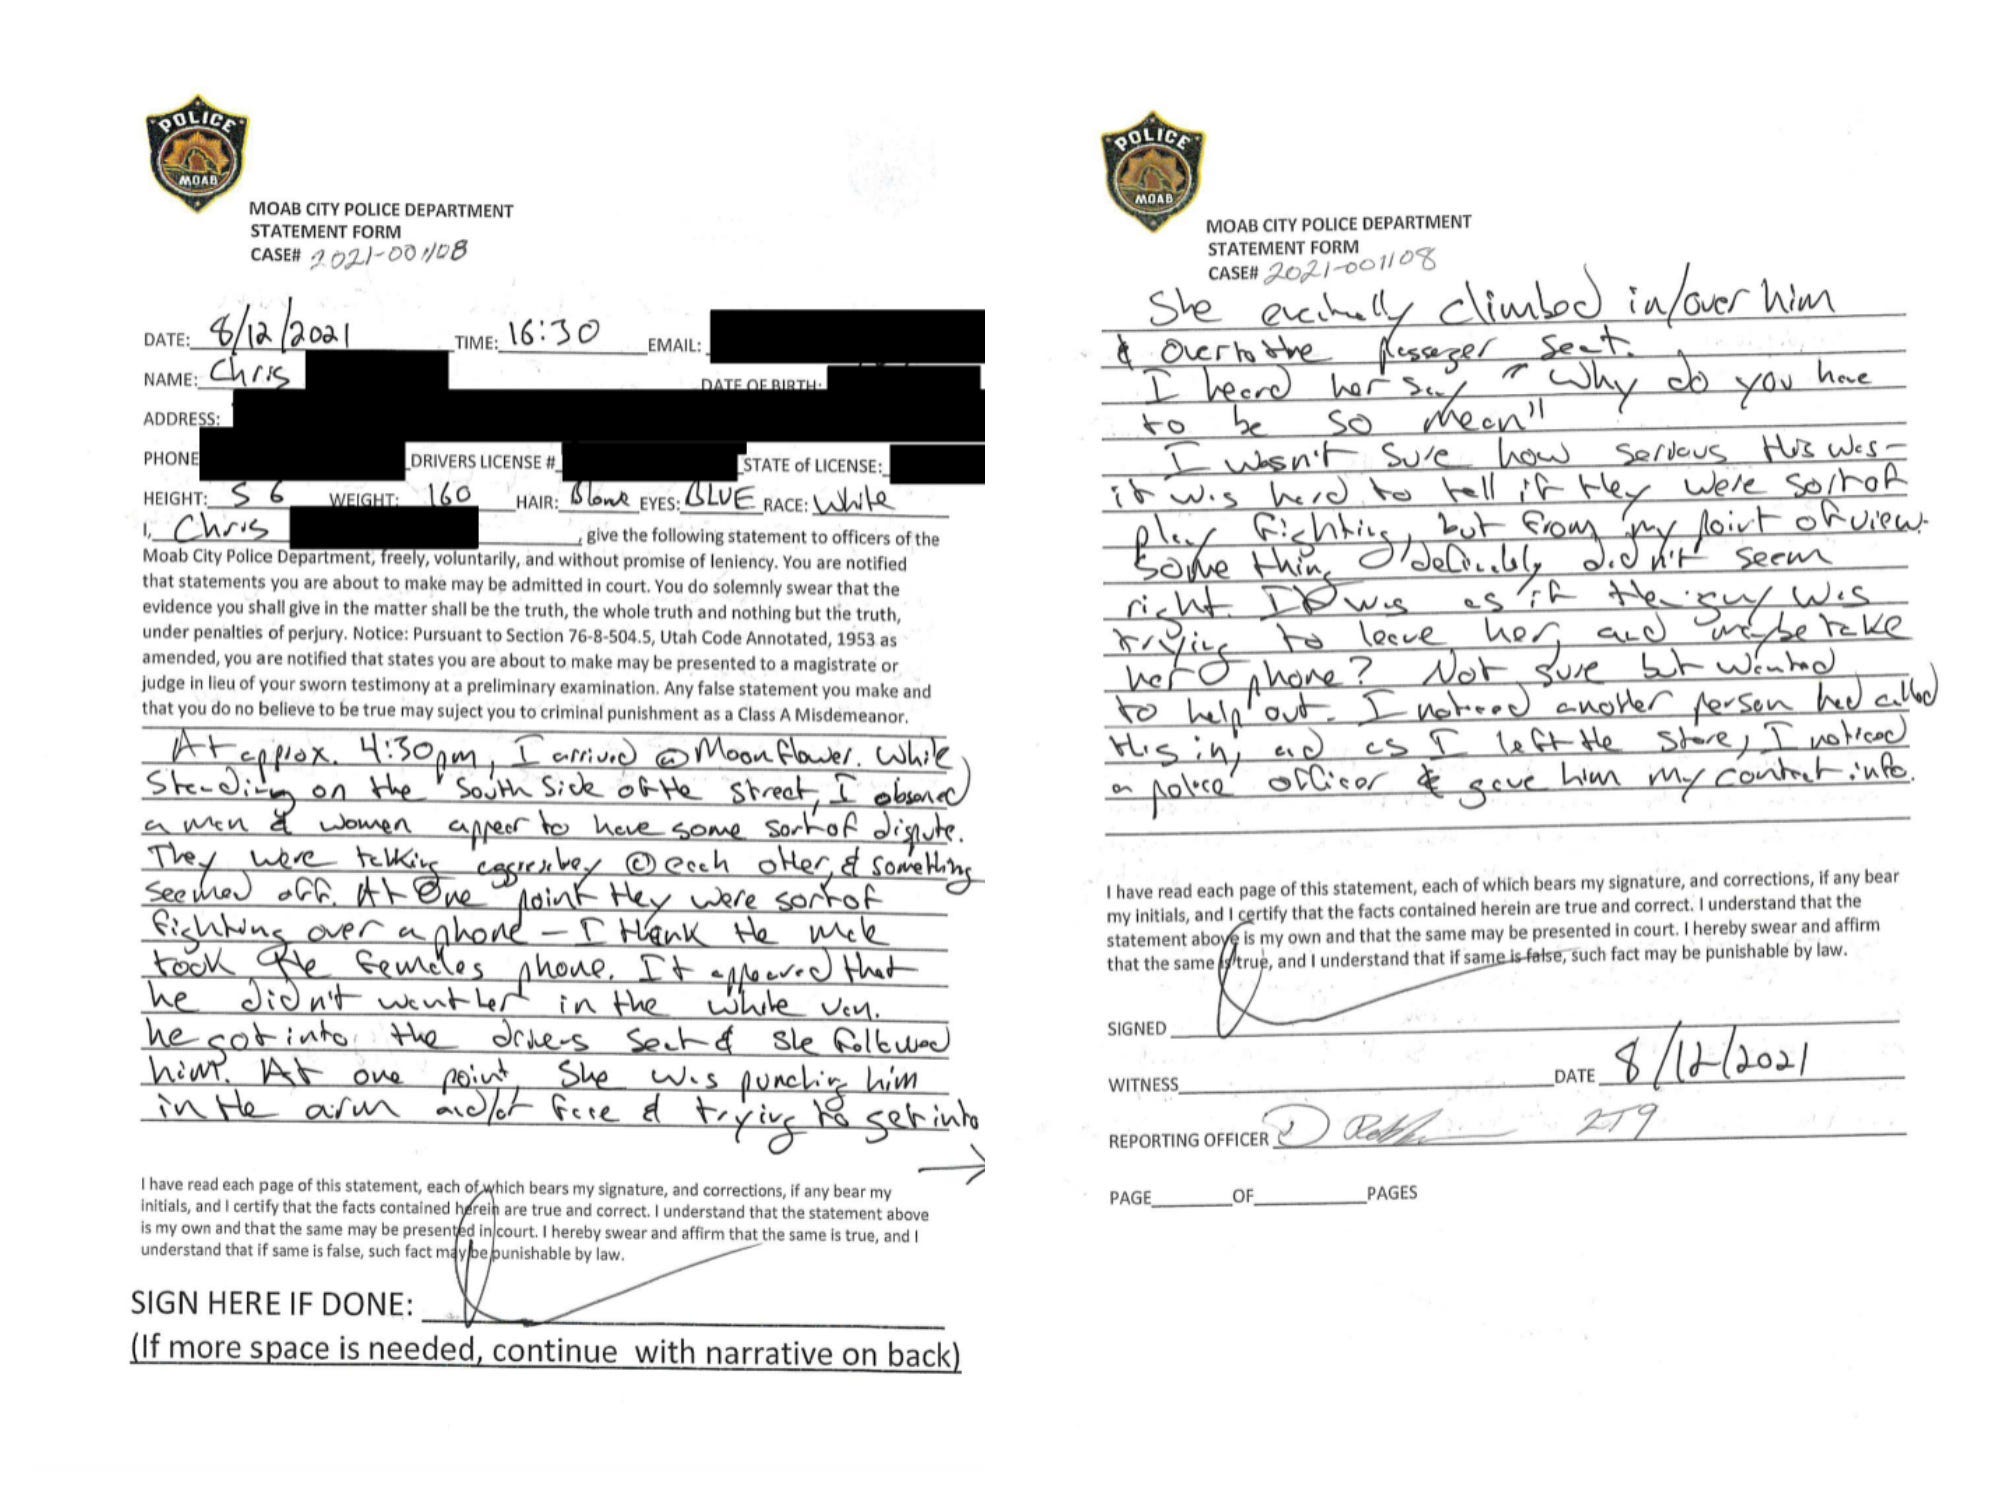 POLICE
MOAB
MOAB CITY POLICE DEPARTMENT
STATEMENT FORM
CASE# 2021-001108
DATE: 8/12/2021 TIME: 16:30 EMAIL:
NAME: Chris DATE OF BIRTH:
ADDRESS:
PHONE DRIVERS LICENSE # STATE of LICENSE:
HEIGHT: 5 6 WEIGHT: 160 HAIR: EYES: BLUE RACE: White
I, Chris , give the following statement to officers of the
Moab City Police Department, freely, voluntarily, and without promise of leniency. You are notified
that statements you are about to make may be admitted in court. You do solemnly swear that the
evidence you shall give in the matter shall be the truth, the whole truth and nothing but the truth,
under penalties of perjury. Notice: Pursuant to Section 76-8-504.5, Utah Code Annotated, 1953 as
amended, you are notified that states you are about to make may be presented to a magistrate or
judge in lieu of your sworn testimony at a preliminary examination. Any false statement you make and
that you do no believe to be true may suject you to criminal punishment as a Class A Misdemeanor.
At approx. 4:30pm, I arrived @ Moonflower. While
Standing on the South Side of the street, I observed
a man & women appear to have some sort of dispute.
They were talking aggressivley @ each other, & something
seemed off. At One point they were sort of
fighting over a phone - I think the male
took the females phone. It appeared that
he didn't want her in the white van.
he got into the drivers seat & she followed
him. At one point, She was punching him
in the arm and/or face & trying to get into
→
I have read each page of this statement, each of which bears my signature, and corrections, if any bear my
initials, and I certify that the facts contained herein are true and correct. I understand that the statement above
is my own and that the same may be presented in court. I hereby swear and affirm that the same is true, and I
understand that if same is false, such fact may be punishable by law.
SIGN HERE IF DONE:
(If more space is needed, continue with narrative on back)
POLICE
MOAB
MOAB CITY POLICE DEPARTMENT
STATEMENT FORM
CASE# 2021-001108
She climbed in/over him
& over to the passenger seat.
I heard her say "Why do you have
to be so mean"
I wasn't sure how serious this was-
it was hard to tell if they were sort of
play fighting, but from my point of view.
Something definitely didn't seem
right. It was as if the guy was
trying to leave her, and maybe take
her phone? Not sure but wanted
to help out. I noticed another person had called
this in, and as I left the store, I noticed
a police officer & gave him my contact info.
I have read each page of this statement, each of which bears my signature, and corrections, if any bear
my initials, and I certify that the facts contained herein are true and correct. I understand that the
statement above is my own and that the same may be presented in court. I hereby swear and affirm
that the same is true, and I understand that if same is false, such fact may be punishable by law.
SIGNED
WITNESS DATE 8/12/2021
REPORTING OFFICER
PAGE OF PAGES